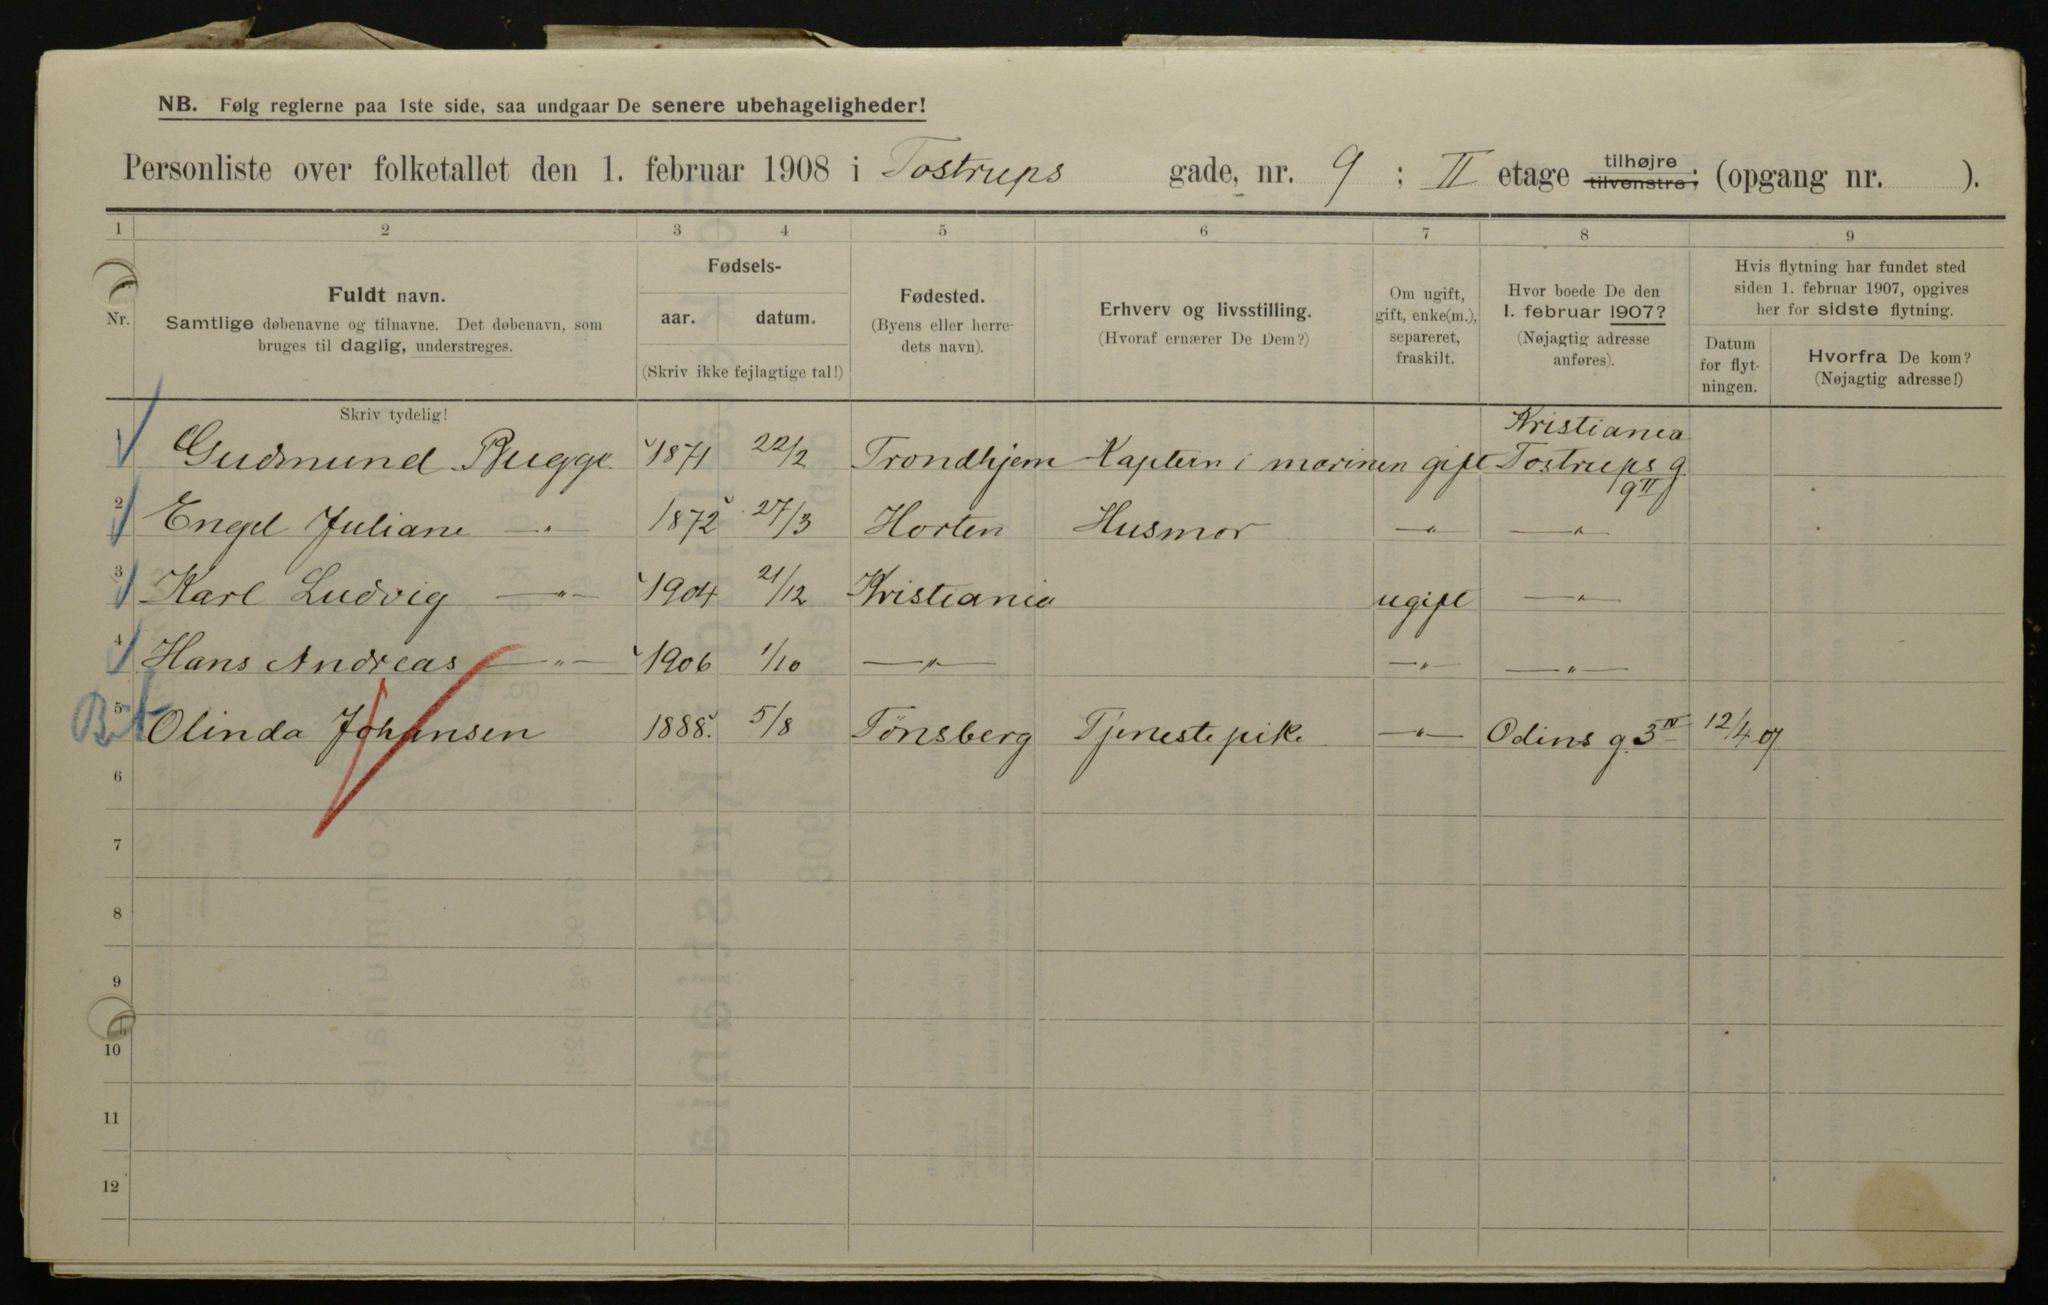 NB. Følg reglerne paa 1ste side, saa undgaar De senere ubehageligheder!
Personliste over folketallet den 1. februar 1908 i Tostrups gade, nr. 9 ; II etage tilhøjre tilvenstre; (opgang nr. ).
1 2 3 4 5 6 7 8 9
Nr.
Fuldt navn.
Samtlige døbenavne og tilnavne. Det døbenavn, som
bruges til daglig, understreges.
Skriv tydelig!
Fødsels-
aar. datum.
(Skriv ikke fejlagtige tal!)
Fødested.
(Byens eller herre-
dets navn).
Erhverv og livsstilling.
(Hvoraf ernærer De Dem?)
Om ugift,
gift, enke(m.),
separeret,
fraskilt.
Hvor boede De den
1. februar 1907?
(Nøjagtig adresse
anføres).
Hvis flytning har fundet sted
siden 1. februar 1907, opgives
her for sidste flytning.
Datum
for flyt-
ningen.
Hvorfra De kom?
(Nøjagtig adresse!)
Kristiania
1 Gudmund Bugge. 1871 22/2 Trondhjem Kaptein i marinen gift Tostrups g
9 II
2 Engel Juliane —"— 1872 27/3 Horten Husmor —"— —"—
3 Karl Ludvig —"— 1904 21/12 Kristiania ugift —"—
4 Hans Andreas —"— 1906 1/10 —"— —"— —"—
5 Olinda Johansen 1888. 5/8 Tønsberg Tjenestepike —"— Odins g. 3 IV 12/4 07
6
7
8
9
10
11
12